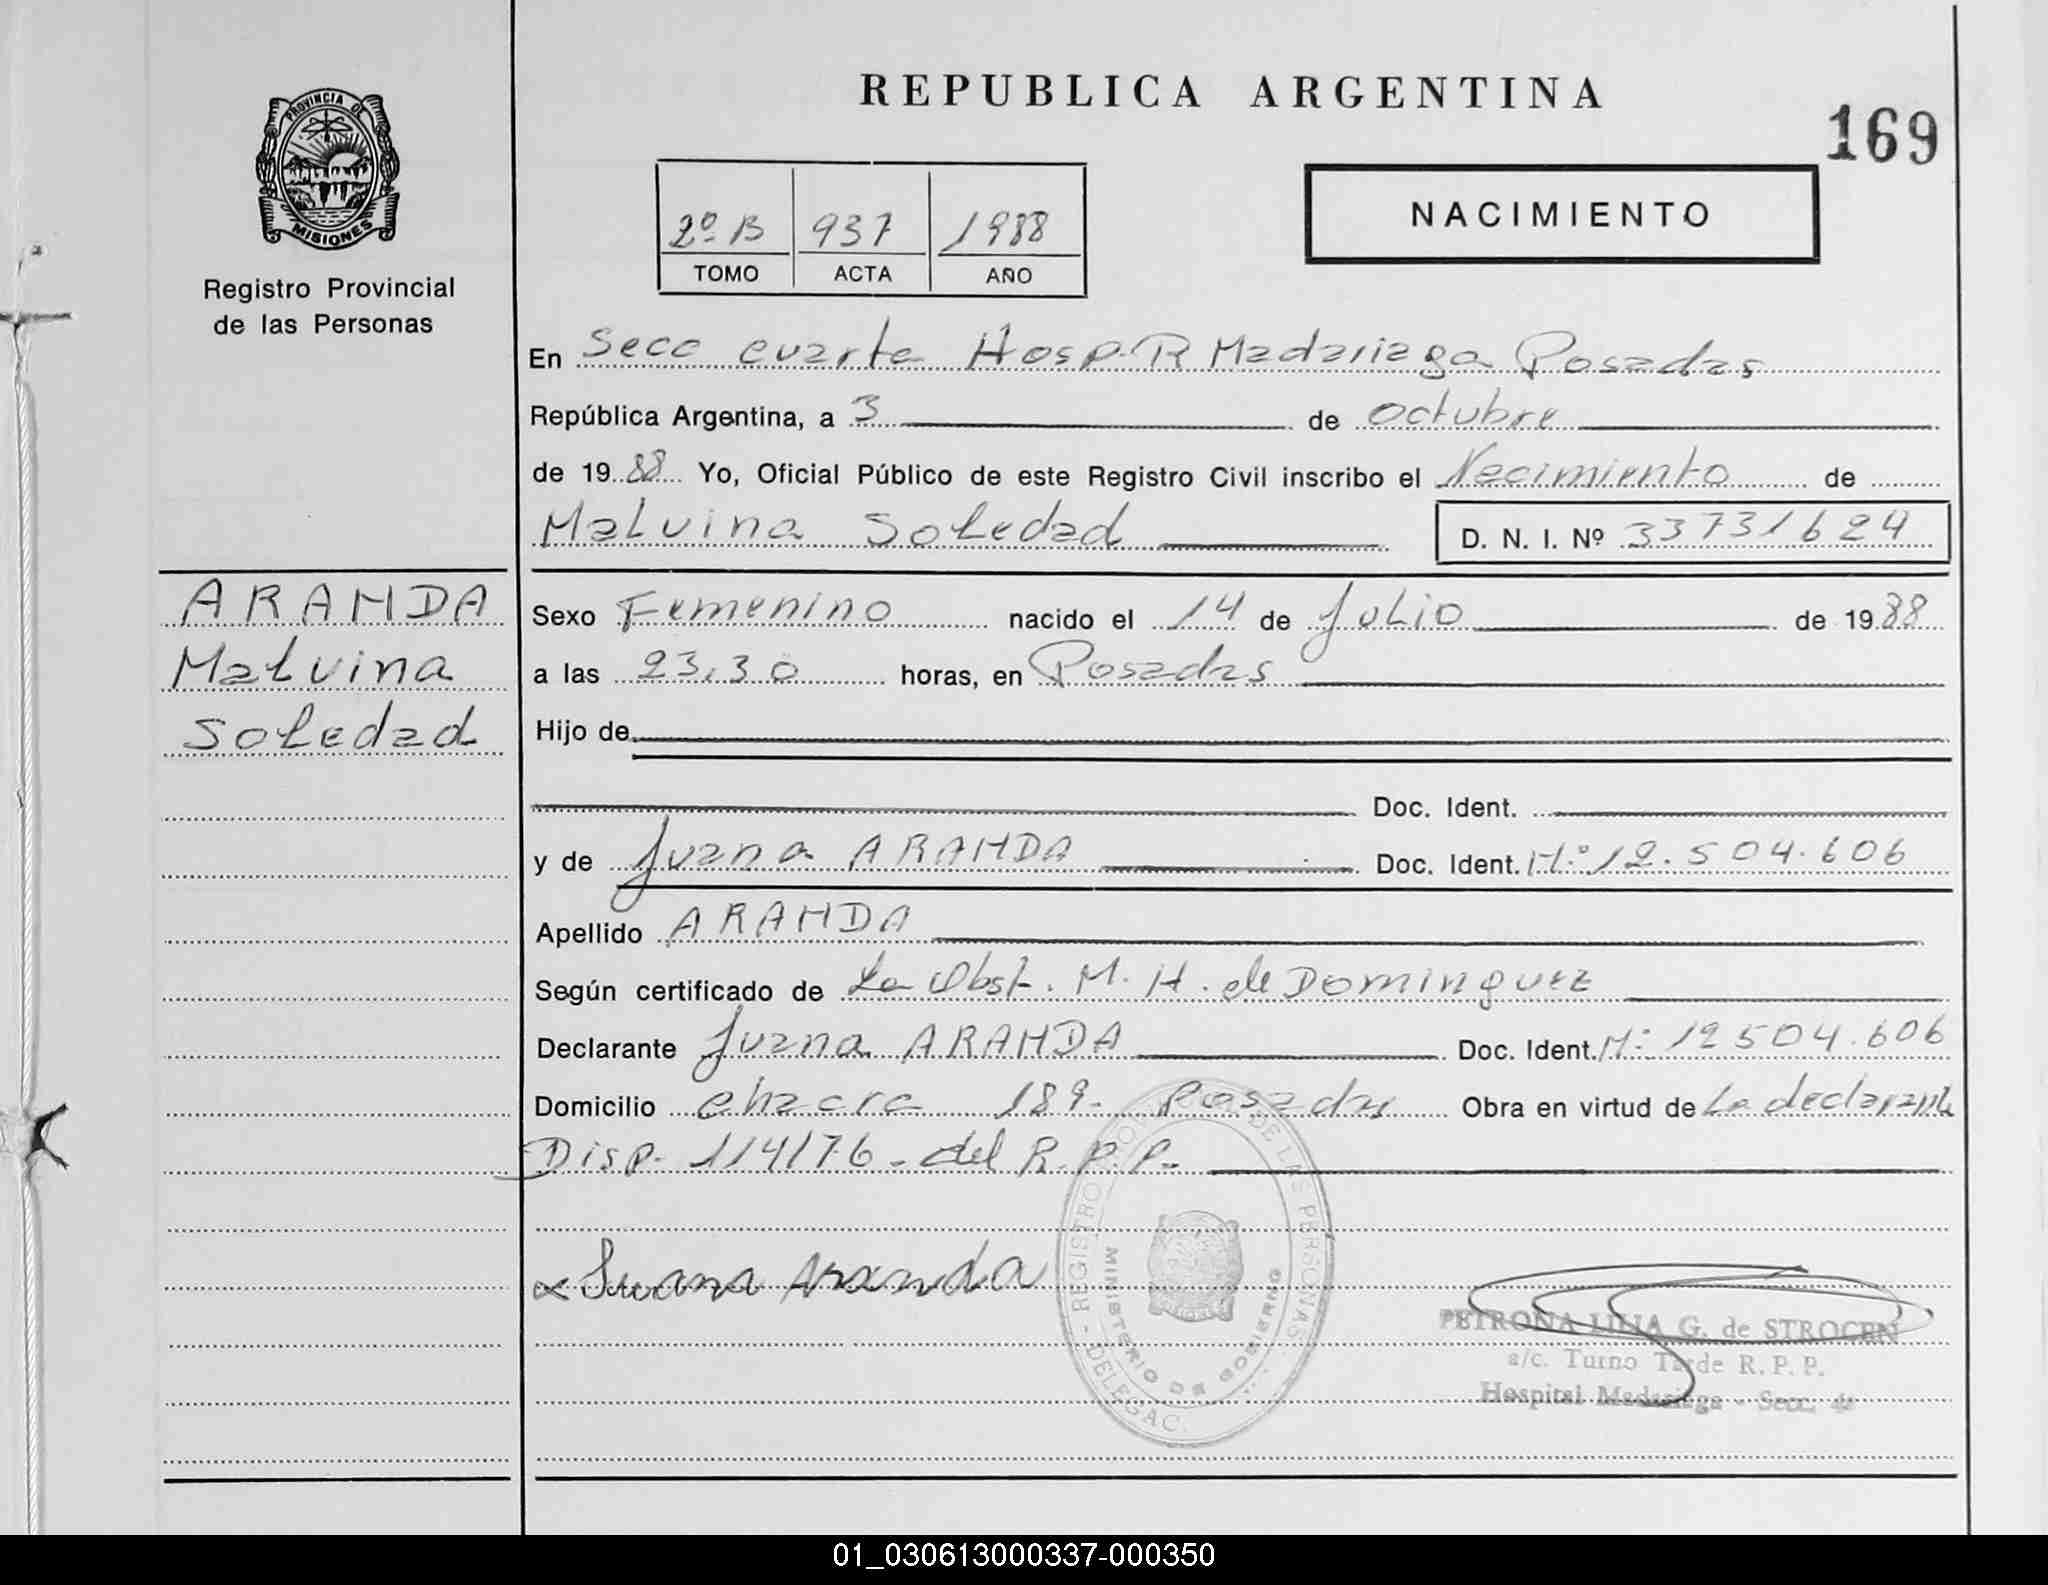 REPUBLICA ARGENTINA
169
PROVINCIA DE
MISIONES
Registro Provincial
de las Personas
2º B 937 1988
TOMO ACTA AÑO
NACIMIENTO
En Secc cuarta Hosp. R Madariaga Posadas
República Argentina, a 3 de octubre
de 1988 Yo, Oficial Público de este Registro Civil inscribo el Nacimiento de
Malvina Soledad D. N. I. Nº 33731624
ARANDA
Malvina
Soledad
Sexo Femenino nacido el 14 de Julio de 1988
a las 23,30 horas, en Posadas
Hijo de
Doc. Ident.
y de Juana ARANDA Doc. Ident. Nº 12.504.606
Apellido ARANDA
Según certificado de La Obst. M. H. de Dominguez
Declarante Juana ARANDA Doc. Ident. Nº 12504.606
Domicilio chacra 189. Posadas Obra en virtud de La declarante
Disp. 114/76. del R. P. P.
Juana Aranda
REGISTRO DE LAS PERSONAS
MINISTERIO DE GOBIERNO
DELEGAC.
PETRONA LILIA G. de STROCEN
a/c. Turno Tarde R. P. P.
Hospital Madariaga - Secc. 4ª
01_030613000337-000350